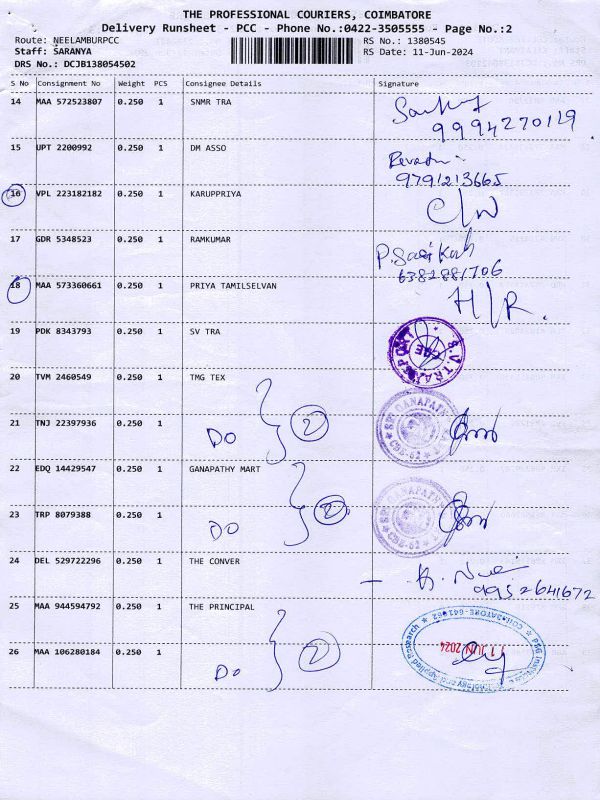 THE PROFESSIONAL COURIERS, COIMBATORE
Delivery Runsheet - PCC - Phone No.:0422-3505555 - Page No.:2
Route: NEELAMBURPCC RS No.: 1380545
Staff: SARANYA RS Date: 11-Jun-2024
DRS No.: DCJB138054502
S No Consignment No Weight PCS Consignee Details Signature
14 MAA 572523807 0.250 1 SNMR TRA
9994270119
15 UPT 2200992 0.250 1 DM ASSO
9791213665
16 VPL 223182182 0.250 1 KARUPPRIYA
17 GDR 5348523 0.250 1 RAMKUMAR
6382881706
18 MAA 573360661 0.250 1 PRIYA TAMILSELVAN H/R.
19 PDK 8343793 0.250 1 SV TRA
S.V.TRANSPORT
CBE
20 TVM 2460549 0.250 1 TMG TEX
21 TNJ 22397936 0.250 1 DO 2
SRI GANAPATHY
CBE-62
22 EDQ 14429547 0.250 1 GANAPATHY MART
23 TRP 8079388 0.250 1 DO 2
SRI GANAPATHY
CBE-62
24 DEL 529722296 0.250 1 THE CONVER
9952641672
25 MAA 944594792 0.250 1 THE PRINCIPAL
26 MAA 106280184 0.250 1 DO 2
PSG Institute of Technology and Applied Research
COIMBATORE-641062
11 JUN 2024